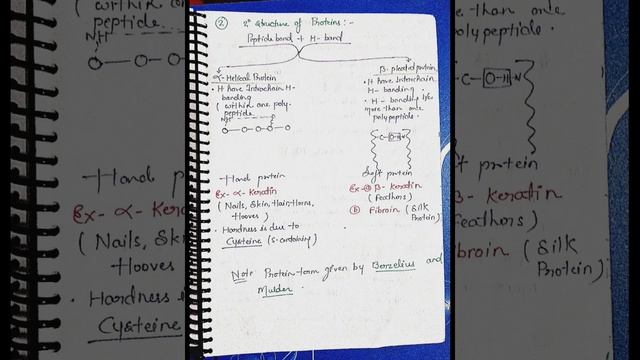 ② 2° Structure of Proteins :-
Peptide bond + H- bond
α-Helical Protein
• It have Intrachain H-
bonding
( within one poly-
peptide.
NH
O — O — O — O — O
Hard protein
Ex- α- Keratin
( Nails, Skin, Hair, Horns,
Hooves )
• Hardness is due to
Cysteine (S-containing)
β- pleated protein
• It have Interchain
H- bonding
• H- bonding b/w
more than one
polypeptide.
C O-H N
Soft protein
Ex- ⓐ β- Keratin
( Feathers )
ⓑ Fibroin ( Silk
Protein)
Note Protein-term given by Berzelius and
Mulder .